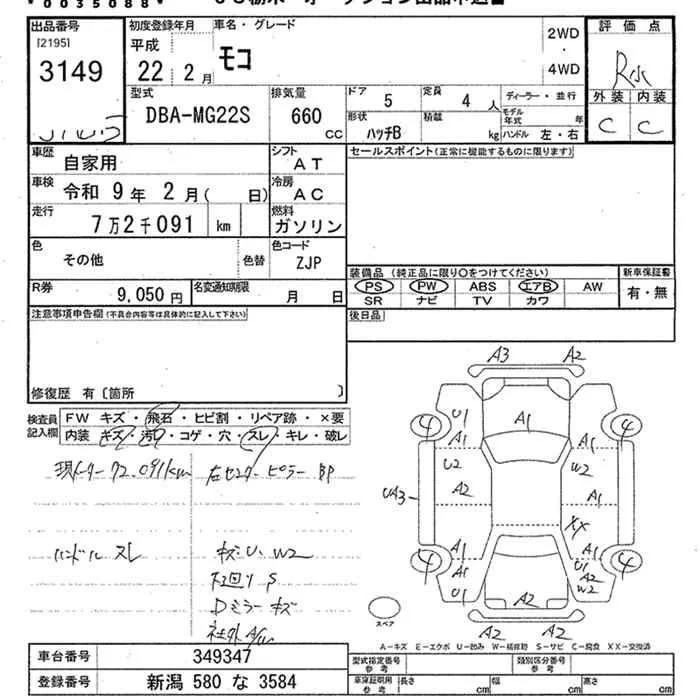 0035088
出品番号
[2195]
3149
初度登録年月
平成
22 2月
車名・グレード
モコ
2WD
・
4WD
評価点
R
外装 内装
C C
型式
DBA-MG22S
排気量
660
CC
ドア
5
定員
4 人
ディーラー・並行
形状
ハッチB
積載
kg
モデル年式
年
ハンドル 左・右
車歴
自家用
シフト
AT
車検
令和 9年 2月( 日)
冷房
AC
走行
7万2千091 km
燃料
ガソリン
色
その他
色替
色コード
ZJP
R券
9,050円
名変通知期限
月 日
セールスポイント(正常に機能するものに限ります)
装備品 (純正品に限り○をつけてください)
新車保証書
PS PW ABS エアB AW
SR ナビ TV カワ
有・無
注意事項申告欄(不具合内容等は具体的に記入して下さい)
後日品
修復歴 有〔箇所 〕
検査員記入欄
FW キズ・飛石・ヒビ割・リペア跡・×要
内装 キズ・汚れ・コゲ・穴・スレ・キレ・破レ
72,091km
左センターピラー BP
ハンドル スレ
キズ U、W2
S
Dミラーキズ
社外A/W
A3 A2
4 U1 A1 4
A1 A1
U2 W2
UA3 A2 A1
XX
4 A1 A1 4
A1 U1
A2
U1 A2 W2
A2 A2
スペア
A-キズ E-エクボ U-凹み W-補修跡 S-サビ C-腐食 XX-交換済
車台番号
349347
登録番号
新潟 580 な 3584
型式指定番号
参考
類別区分番号
参考
車庫証明用
参考
長さ cm
幅 cm
高さ cm